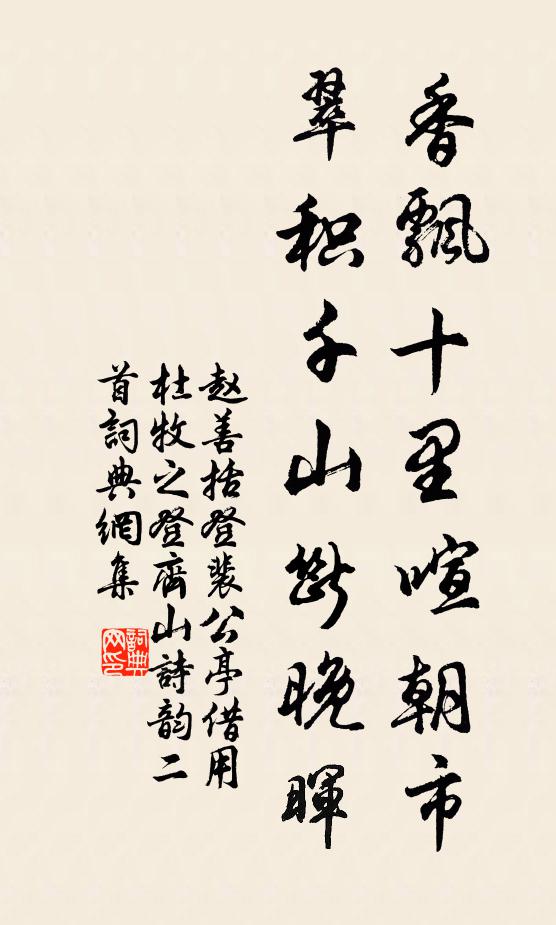 香飄十里喧朝市
翠积千山断晚暉
赵善括登裴公亭借用
杜牧之登齊山詩韵二
首詞典網集
詞典网印